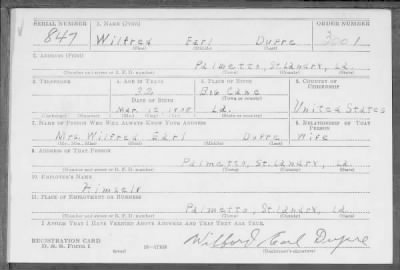 SERIAL NUMBER 1. NAME (Print) ORDER NUMBER
847 Wilfred Earl Dupre 3001
(First) (Middle) (Last)
2. ADDRESS (Print)
Palmetto, St. Landry, La.
(Number and street or R. F. D. number) (Town) (County) (State)
3. TELEPHONE 4. AGE IN YEARS 5. PLACE OF BIRTH 6. COUNTRY OF CITIZENSHIP
32 Big Cane
DATE OF BIRTH (Town or county)
Mar. 1908 La. United States
(Exchange) (Number) (Mo.) (Day) (Yr.) (State or country)
7. NAME OF PERSON WHO WILL ALWAYS KNOW YOUR ADDRESS 8. RELATIONSHIP OF THAT PERSON
Mrs. Wilfred Earl Dupre Wife
(Mr., Mrs., Miss) (First) (Middle) (Last)
9. ADDRESS OF THAT PERSON
Palmetto, St. Landry, La.
(Number and street or R. F. D. number) (Town) (County) (State)
10. EMPLOYER'S NAME
Himself
11. PLACE OF EMPLOYMENT OR BUSINESS
Palmetto, St. Landry, La.
(Number and street or R. F. D. number) (Town) (County) (State)
I AFFIRM THAT I HAVE VERIFIED ABOVE ANSWERS AND THAT THEY ARE TRUE.
REGISTRATION CARD
D. S. S. Form 1 (over) 16-17105 Wilford Earl Dupre
(Registrant's signature)